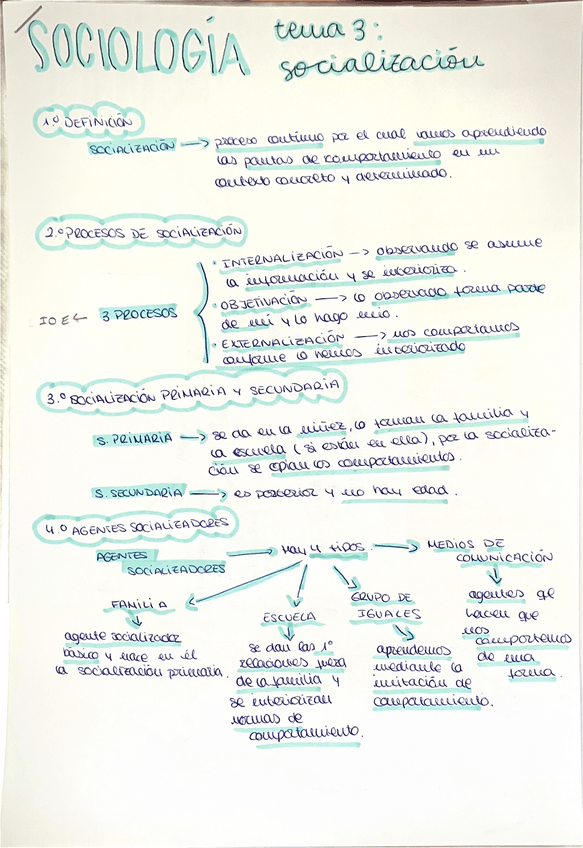 SOCIOLOGÍA
tema 3:
socialización
1.º DEFINICIÓN
SOCIALIZACIÓN → proceso continuo por el cual vamos aprendiendo
las pautas de comportamiento en un
contexto concreto y determinado.
2.º PROCESOS DE SOCIALIZACIÓN
IOE ← 3 PROCESOS
· INTERNALIZACIÓN → observando se asume
la información y se interioriza.
· OBJETIVACIÓN → lo observado forma parte
de mi y lo hago mío.
· EXTERNALIZACIÓN → nos comportamos
conforme lo hemos interiorizado
3.º SOCIALIZACIÓN PRIMARIA Y SECUNDARIA
S. PRIMARIA → se da en la niñez, lo forman la familia y
la escuela (si están en ella), por la socializa-
ción se copian los comportamientos.
S. SECUNDARIA → es posterior y no hay edad.
4.º AGENTES SOCIALIZADORES
AGENTES
SOCIALIZADORES
→ HAY 4 TIPOS. →
MEDIOS DE
COMUNICACIÓN
agentes qe
hacen que
nos
comportemos
de una
forma.
FAMILIA
agente socializador
básico y nace en él
la socialización primaria.
ESCUELA
se dan las 1º
relaciones fuera
de la familia y
se interiorizan
normas de
comportamiento.
GRUPO DE
IGUALES
aprendemos
mediante la
imitación de
comportamiento.